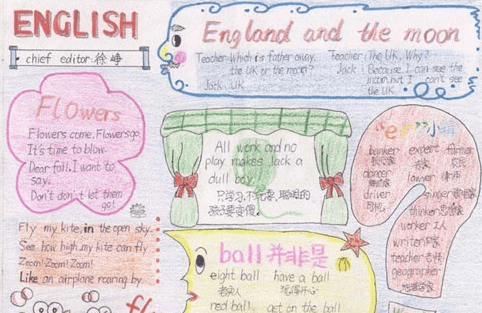 ENGLISH
chief editor 徐峥
England and the moon
Teacher: Which is father away,
the UK or the moon?
Jack: UK
Teacher: The UK. Why?
Jack: Because I can see the
moon, but I can't see
the UK.
Flowers
Flowers come, Flowers go
It's time to blow.
Dear fall, I want to
say,
Don't don't let them
go!
All work and no
play makes Jack a
dull boy.
只学习,不玩耍,聪明的
孩子要变傻.
"er"小辑
banker
expert
farmer
专家
农民
dancer
lawyer 律师
driver
司机
singer 歌唱家
thinker 思想家
worker 工人
writer 作家
teacher 老师
geographer
地理学家
Fly my kite, in the open sky.
See how high my kite can fly
Zoom! Zoom! Zoom!
Like an airplane roaring by.
ball 并非是
eight ball
have a ball
red ball
get on the ball